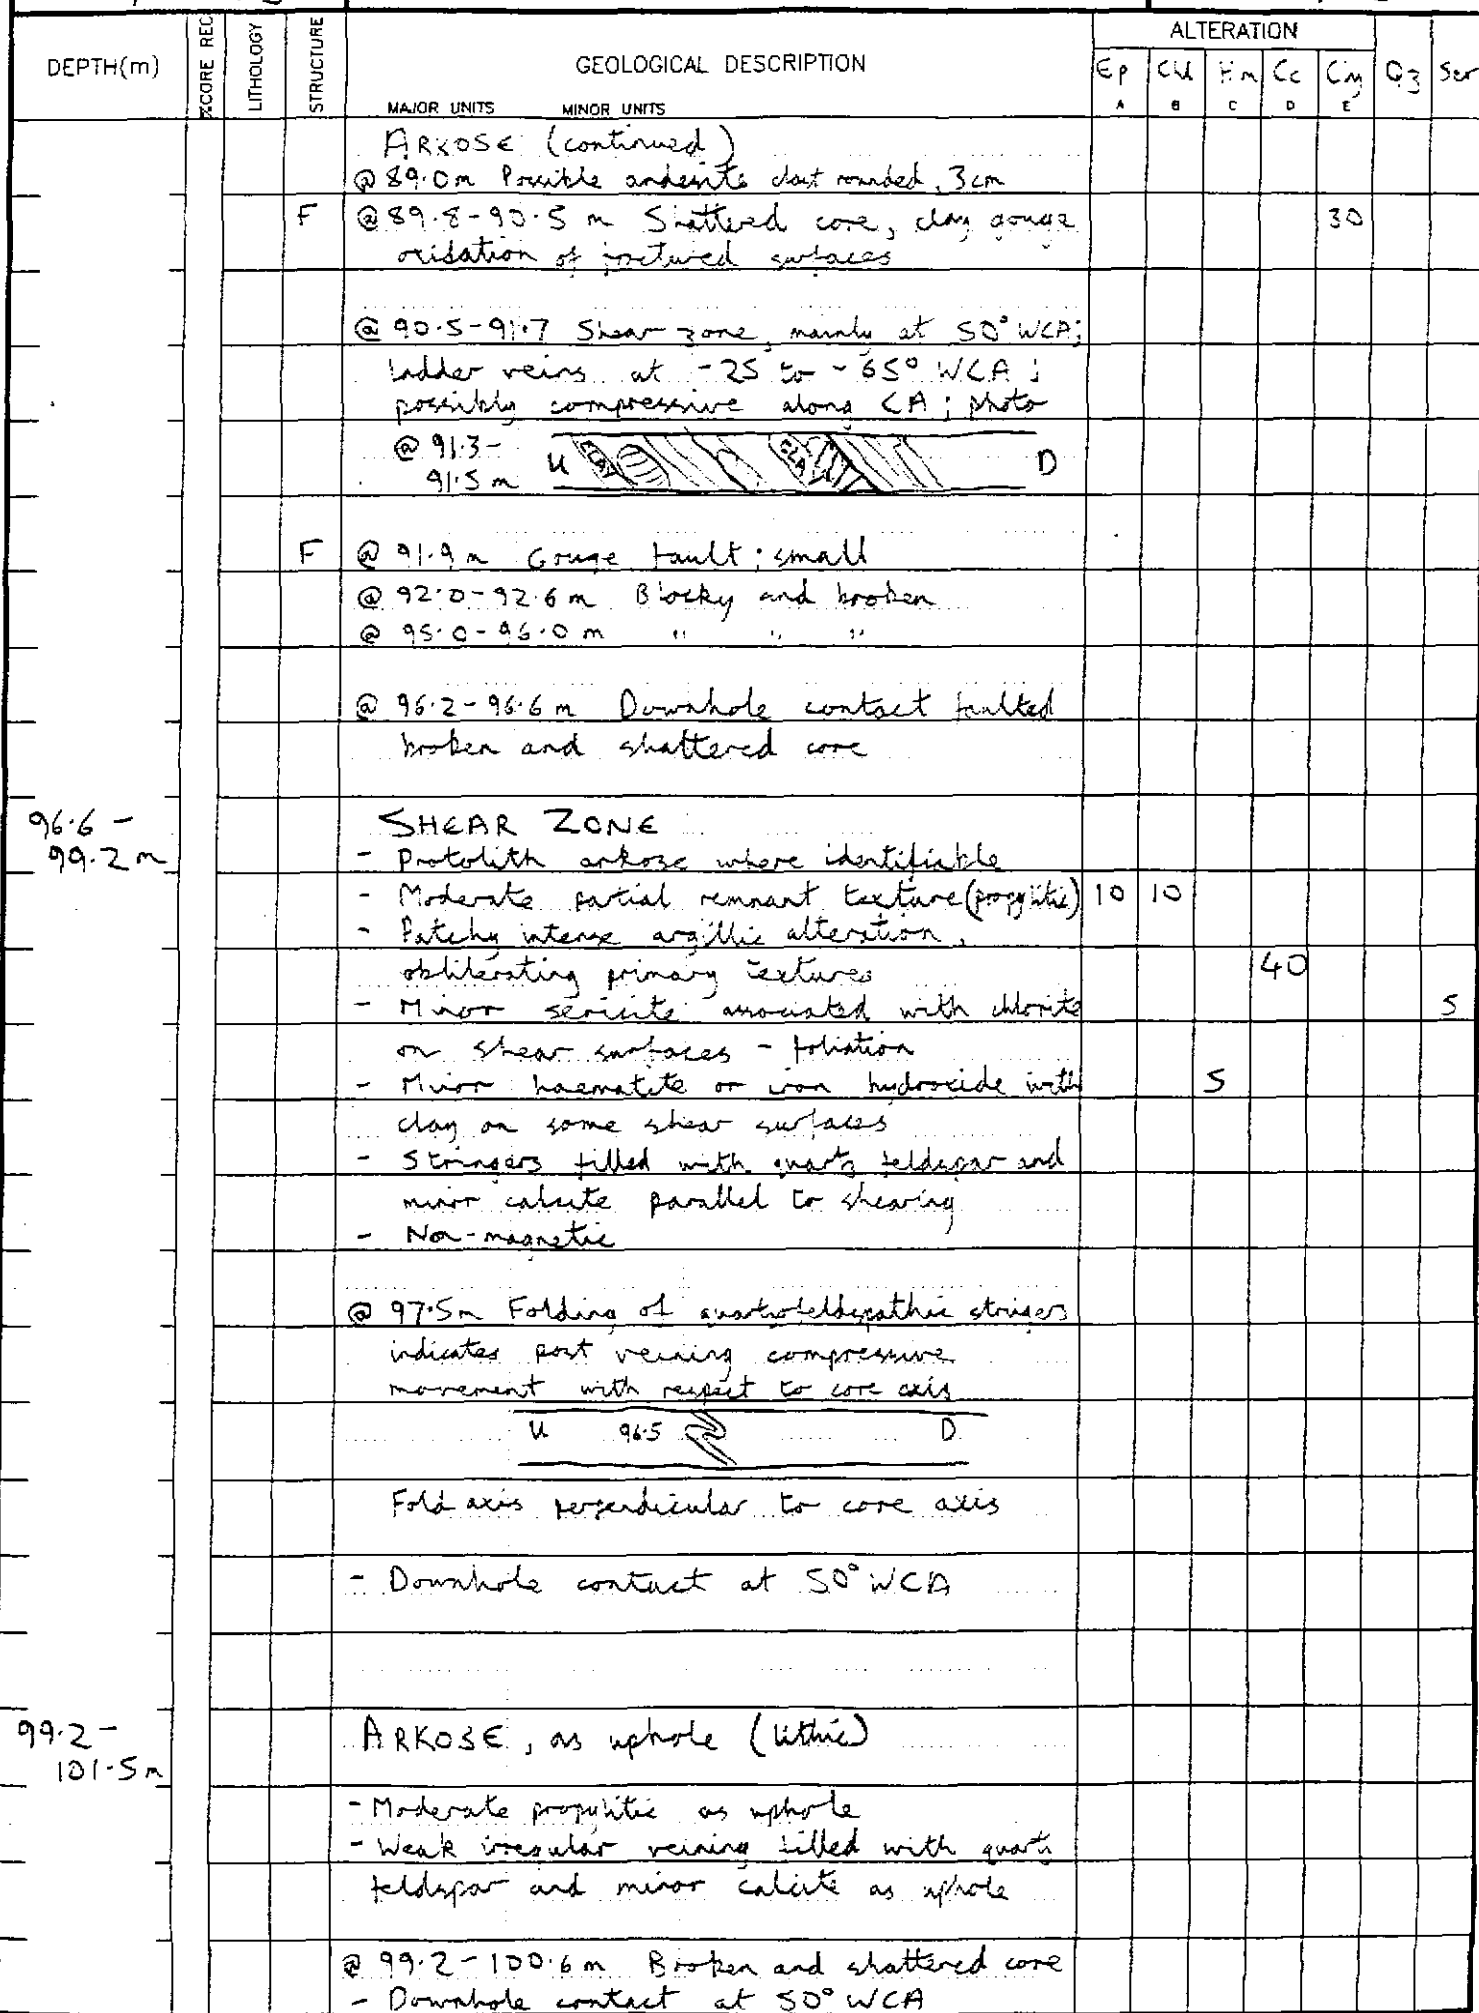 DEPTH(m)
%CORE REC
LITHOLOGY
STRUCTURE
GEOLOGICAL DESCRIPTION
MAJOR UNITS MINOR UNITS
ALTERATION
Ep Chl Hm Cc Cly Qz Ser
A B C D E
ARKOSE (continued)
@ 89.0m Possible andesite clast rounded, 3cm
F @ 89.8-90.5 m Shattered core, clay gouge 30
oxidation of fractured surfaces
@ 90.5-91.7 Shear zone, mainly at 50° WCA;
ladder veins at -25 to -65° WCA;
possibly compressive along CA; photo
@ 91.3-
91.5 m
U CLAY CLAY D
F @ 91.9m Gouge fault; small
@ 92.0-92.6 m Blocky and broken
@ 95.0-96.0 m " " "
@ 96.2-96.6 m Downhole contact faulted
broken and shattered core
96.6 -
99.2 m
SHEAR ZONE
- Protolith arkose where identifiable
- Moderate partial remnant texture (propylitic) 10 10
- Patchy intense argillic alteration,
obliterating primary textures 40
- Minor sericite associated with chlorite 5
on shear surfaces - foliation
- Minor haematite or iron hydroxide with 5
clay on some shear surfaces
- Stringers filled with quartz feldspar and
minor calcite parallel to shearing
- Non-magnetic
@ 97.5m Folding of quartzofeldspathic stringers
indicates post veining compressive
movement with respect to core axis
U 96.5 D
Fold axis perpendicular to core axis
- Downhole contact at 50° WCA
99.2 -
101.5m
ARKOSE, as uphole (lithic)
- Moderate propylitic as uphole
- Weak irregular veining filled with quartz
feldspar and minor calcite as uphole
@ 99.2-100.6m Broken and shattered core
- Downhole contact at 50° WCA